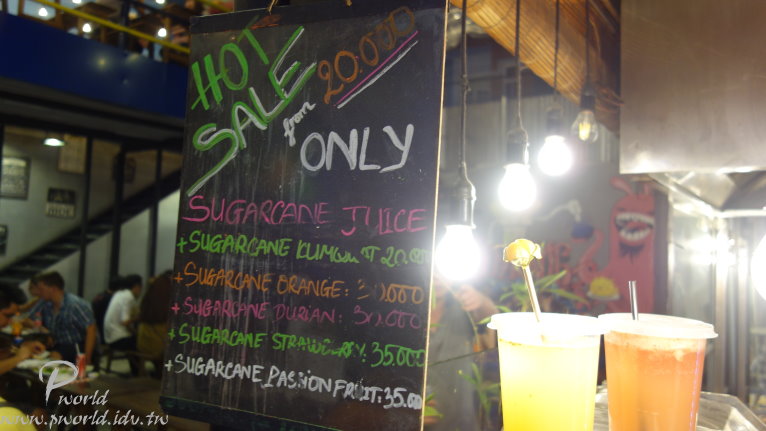 HOT
SALE
from
20.000
ONLY
SUGARCANE JUICE
+ SUGARCANE
+ SUGARCANE ORANGE:
+ SUGARCANE DURIAN:
+ SUGARCANE STRAWBERRY, 35.000
+ SUGARCANE PASSION FRUIT:
Pworld
www.pworld.idv.tw